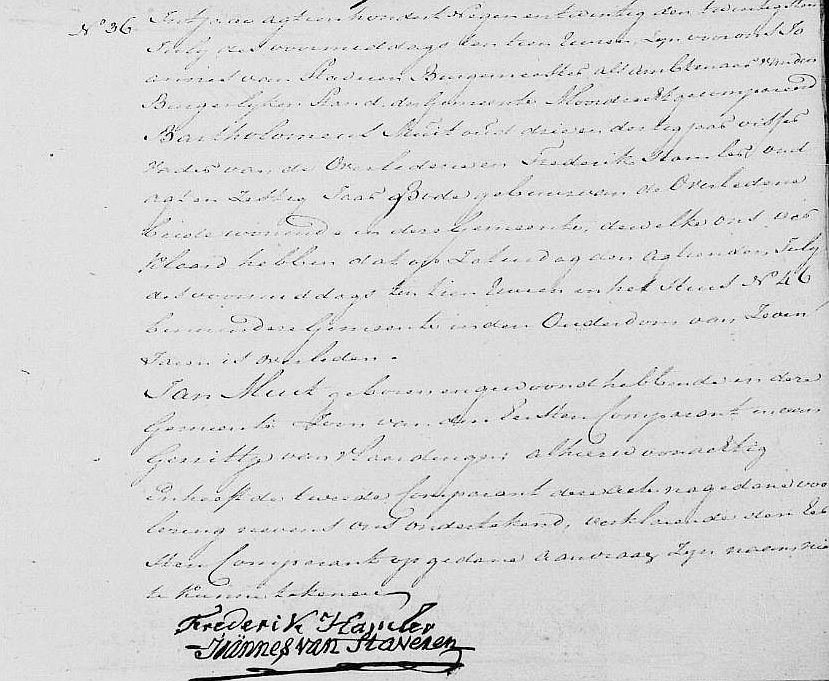 N° 36 Int jaar agtien honderd Negen en twintig den twintigsten
July, des voormiddags ten tien Euren, Zyn voor ons Jo
annes van Staveren Burgemeester als Ambtenaar van den
Burgerlyken Stand, der Gemeente Moordrecht gecompareerd
Bartholomeus Muit oud drie en dertig jaar visser
Vader van de Overledene en Frederik Hamler, oud
agt en Zestig Jaar Bode gebuur van de Overledene
beide wonende in deze Gemeente, dewelke ons ver
klaard hebben dat op Zaturdag den Agtienden July
des voormiddags ten tien Euren in het Huis N° 46
binnen deze Gemeente in den Ouderdom van Zeven
Jaren is overleden.
Jan Muit geboren en gewoond hebbende in deze
Gemeente Zoon van den Eersten Comparant en van
Gerritje van Vlaardingen alhier woonachtig
En heeft de tweede Comparant deze acte na gedane voor
lezing nevens ons ondertekend, verklarende den Eer
sten Comparant op gedane aanvraag Zyn naam niet
te kunne tekenen
Frederik Hamler
Joännes van Staveren